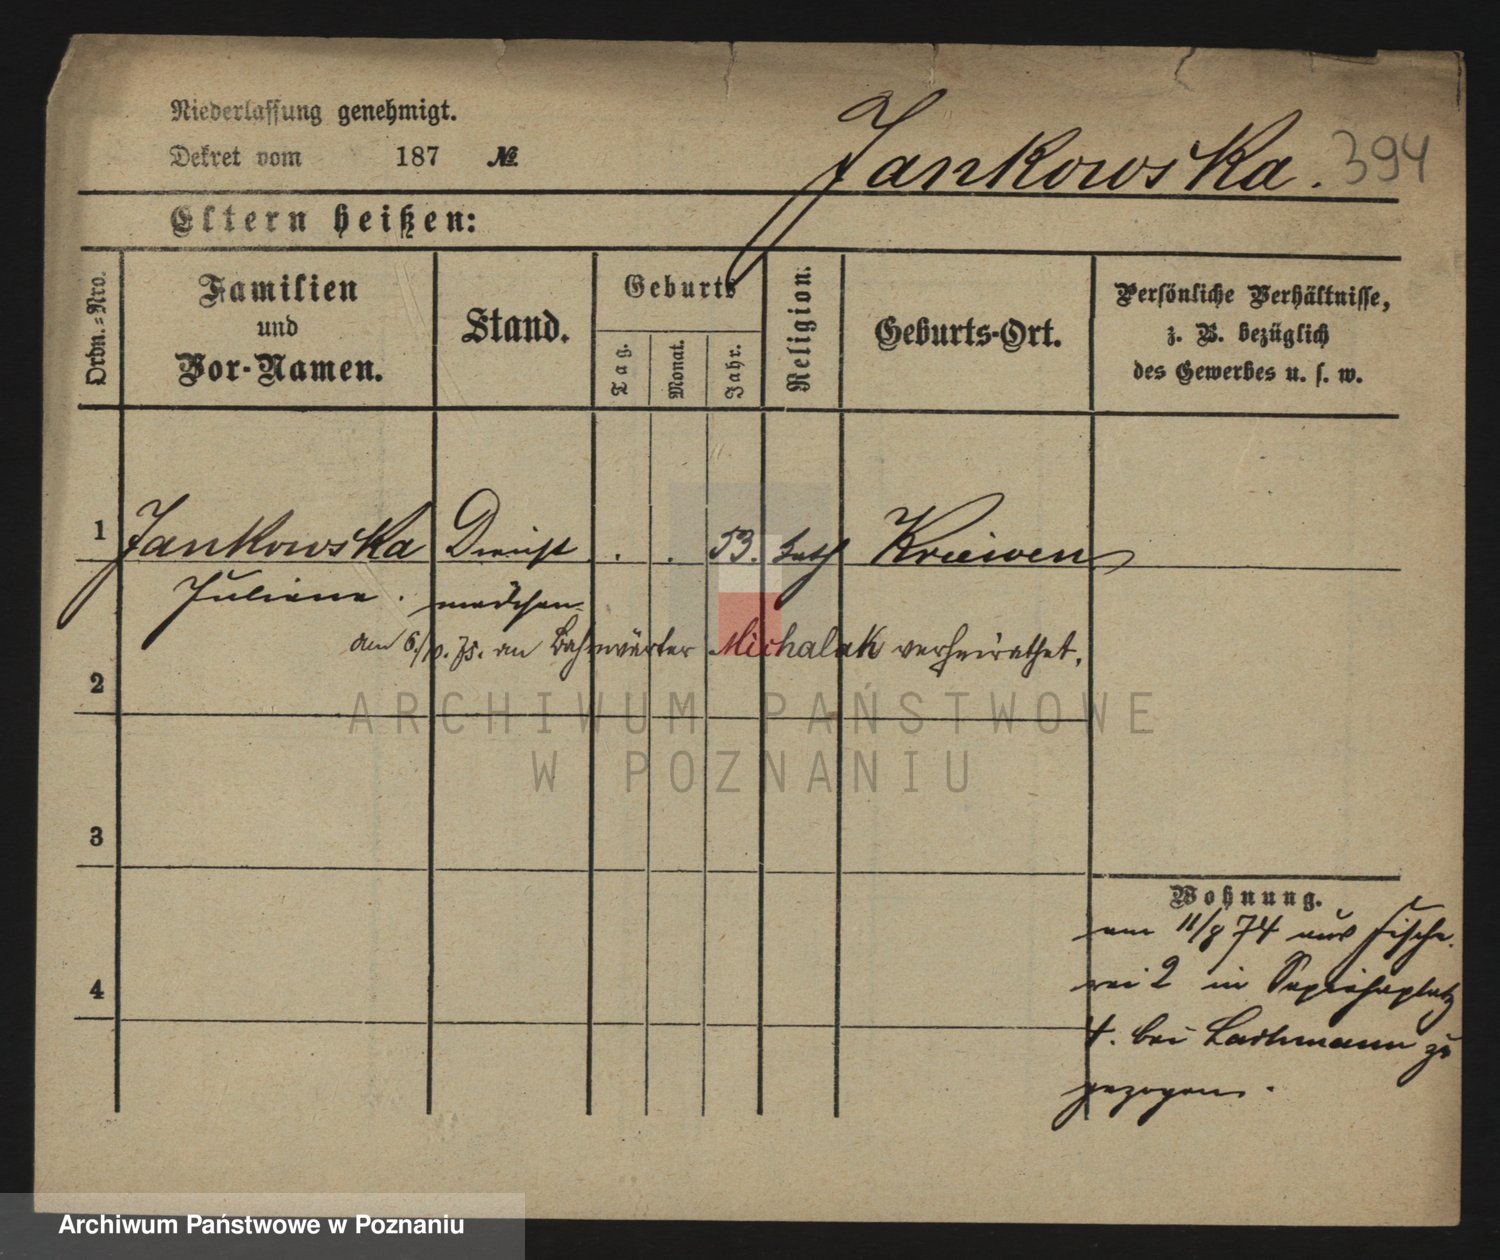 Niederlassung genehmigt.
Dekret vom 187 №
Jankowska. 394
Eltern heißen:
Ordn.-Nro.
Familien
und
Vor-Namen.
Stand.
Geburts
Tag.
Monat.
Jahr.
Religion.
Geburts-Ort.
Persönliche Verhältnisse,
z. B. bezüglich
des Gewerbes u. s. w.
1 Jankowska Dienst . . 53. kath Kriewen
Juliana. mädchen
am 6./10. 75. an Bahnwärter Michalak verheirathet.
2
ARCHIWUM PAŃSTWOWE
W POZNANIU
3
Wohnung.
am 11/8 74 aus Fische-
4
rei 2 in Sapiehaplatz
4. bei Lachmann zu
gezogen.
Archiwum Państwowe w Poznaniu